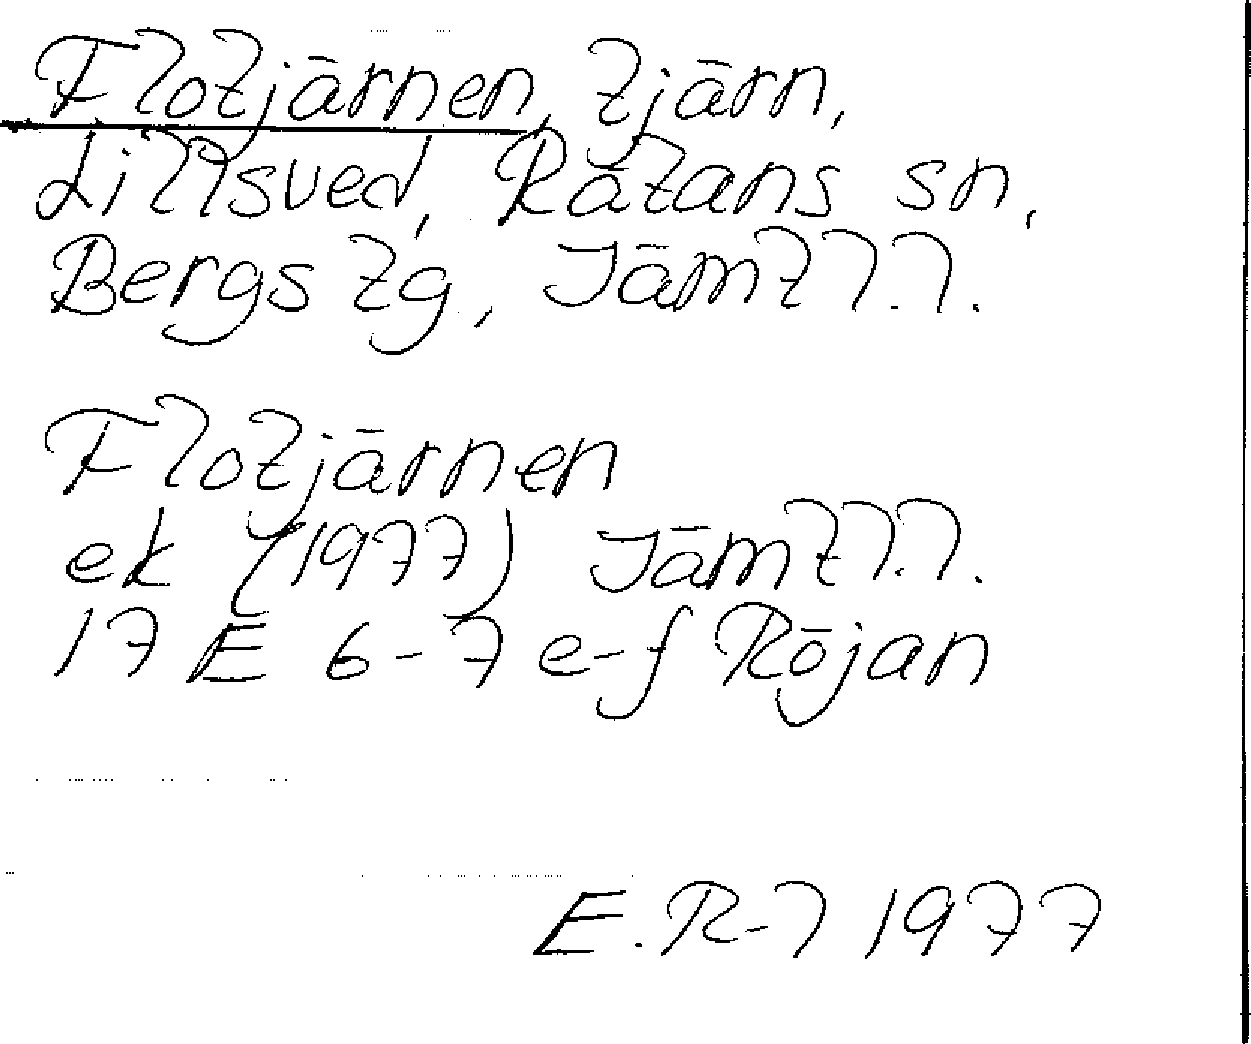 Flotjärnen, tjärn,
Lillsved, Rätans sn,
Bergs tg, Jämtl.l.
Flotjärnen
ek (1977) Jämtl.l.
17 E 6-7 e-f Röjan
E.R-l 1977